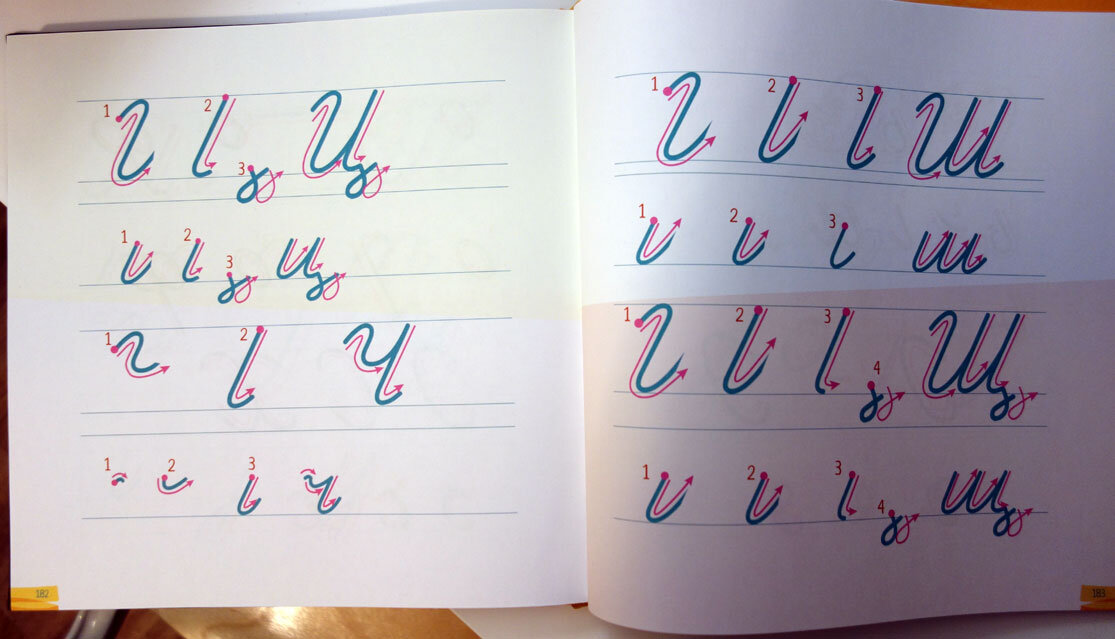 1 2 3 Ц
1 2 3 ц
1 2 Ч
1 2 3 ч
182
1 2 3 Ш
1 2 3 ш
1 2 3 4 Щ
1 2 3 4 щ
183